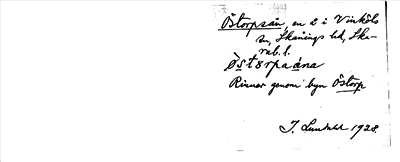 Östorpsån, en å i Vinköls
sn, Skånings hd, Ska-
rab. l.
Östorpaåna
Rinner genom byn Östorp
J. Lundahl 1928